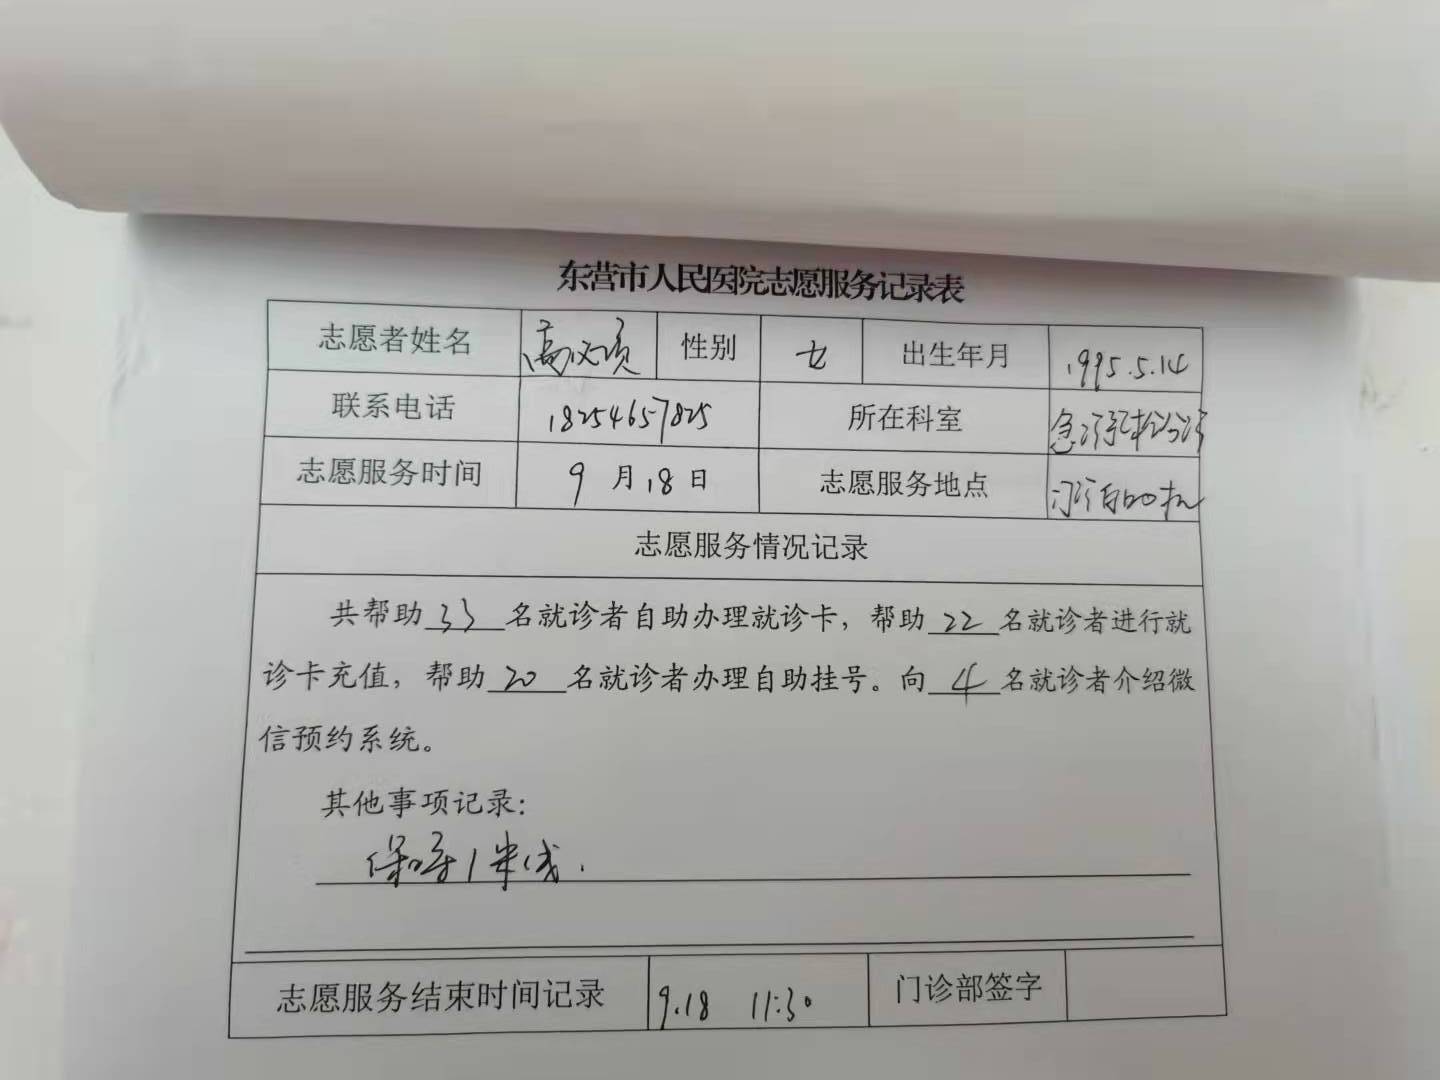 东营市人民医院志愿服务记录表
志愿者姓名 高 性别 女 出生年月 1995.5.14
联系电话 18254657825 所在科室 急诊
志愿服务时间 9月18日 志愿服务地点 门诊自助机
志愿服务情况记录
共帮助33名就诊者自助办理就诊卡，帮助22名就诊者进行就
诊卡充值，帮助20名就诊者办理自助挂号。向4名就诊者介绍微
信预约系统。
其他事项记录：
保持1米线.
志愿服务结束时间记录 9.18 11:30 门诊部签字